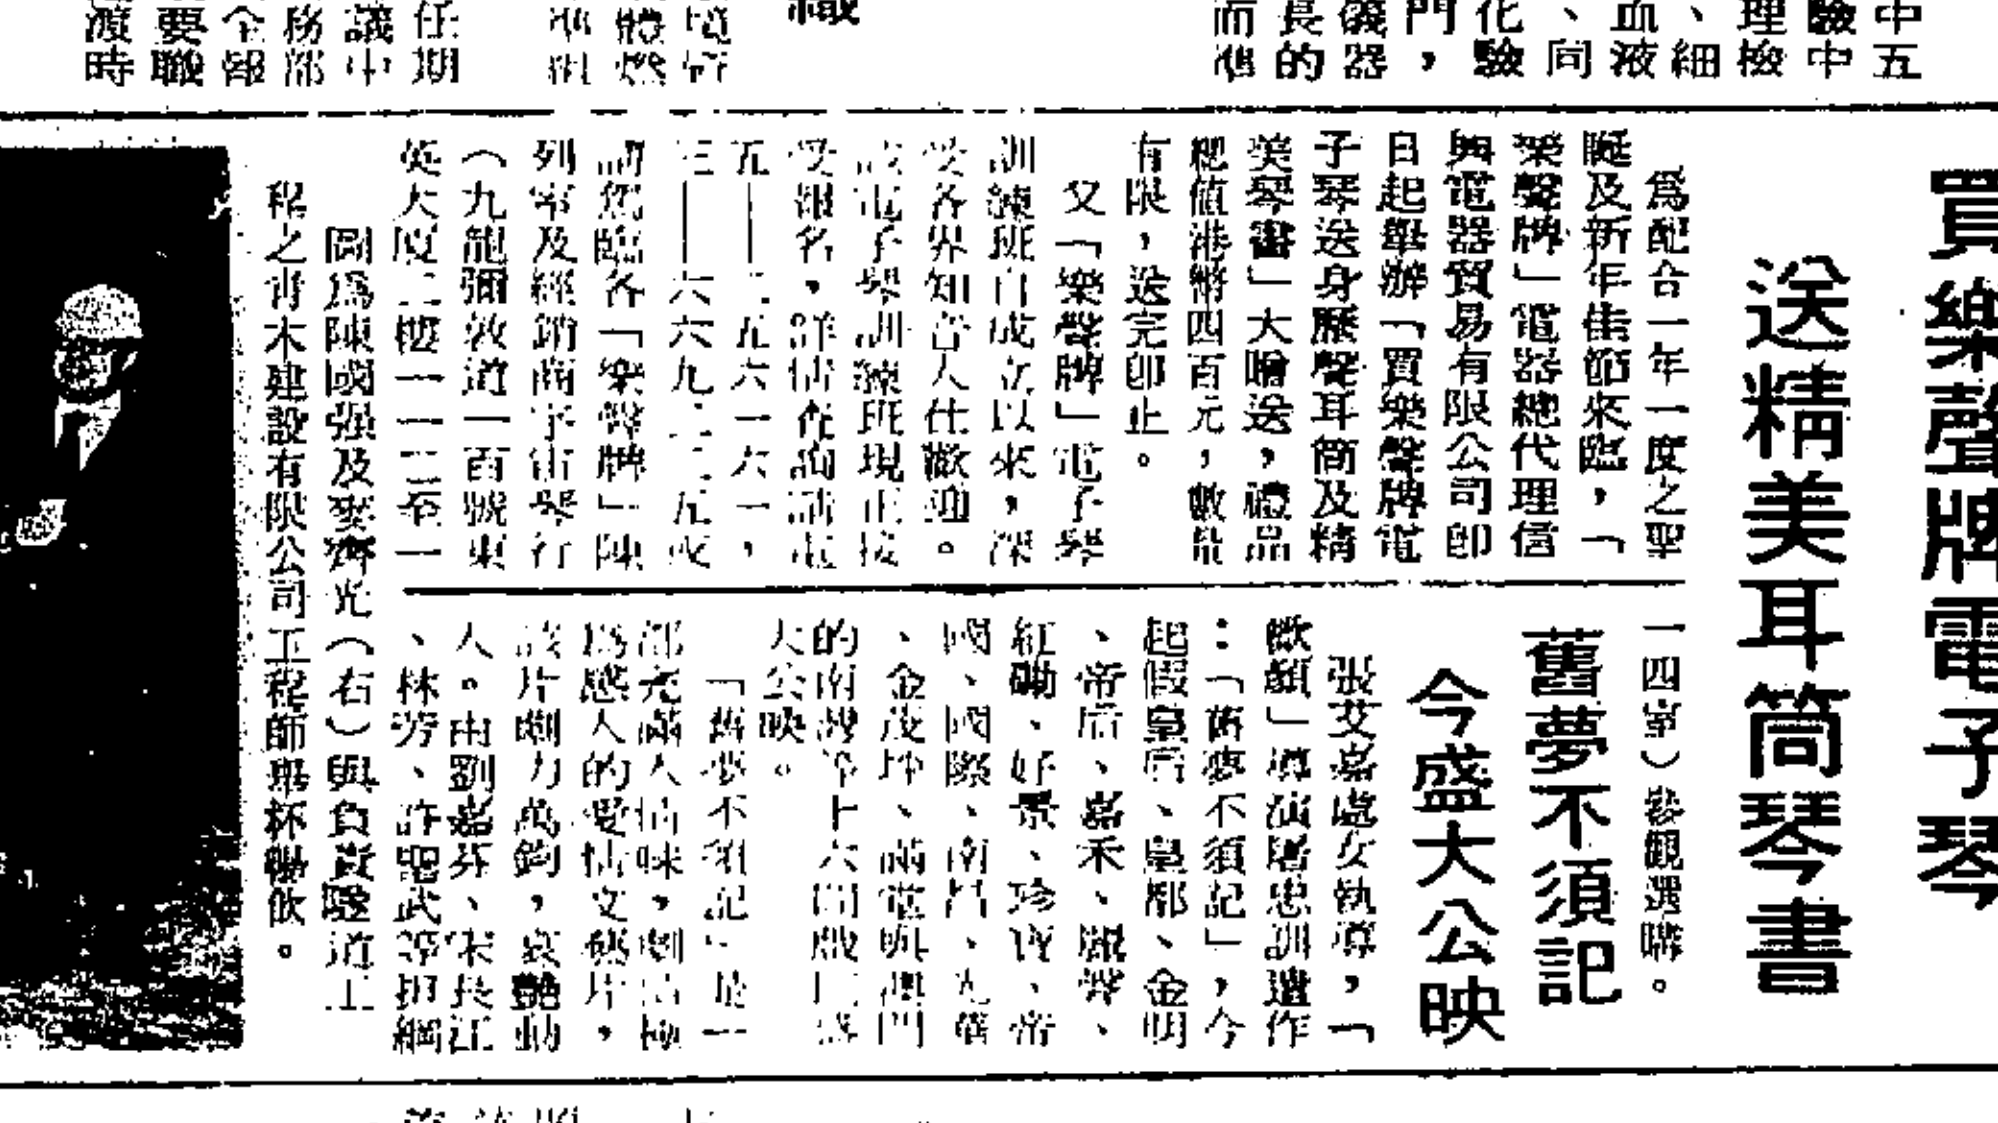 買樂聲牌電子琴
送精美耳筒琴書
爲配合一年一度之聖
誕及新年佳節來臨，「
樂聲牌」電器總代理信
興電器貿易有限公司即
日起舉辦「買樂聲牌電
子琴送身歷聲耳筒及精
美琴書」大贈送，禮品
總值港幣四百元，數量
有限，送完即止。
又「樂聲牌」電子琴
訓練班自成立以來，深
受各界知音人仕歡迎。
該電子琴訓練班現正接
受報名，詳情查詢請電
五—二五六一六一，
三—六六九二二五或
請駕臨各「樂聲牌」陳
列室及經銷商宇宙琴行
（九龍彌敦道一百號東
英大廈二樓一一二至一
一四室）參觀選購。
舊夢不須記
今盛大公映
張艾嘉處女執導，「
歡顏」導演屠忠訓遺作
：「舊夢不須記」，今
起假皇后、皇都、金明
、帝后、嘉禾、麗聲、
紅磡、好景、珍寶、帝
國、國際、南昌、元華
、金茂坪、滿電與澳門
的南灣等十六間戲院盛
大公映。
「舊夢不須記」是一
部充滿人情味，劇情極
爲感人的愛情文藝片，
該片劇力萬鈞，哀艷動
人。由劉嘉芬、宋長江
、林芳、許紹武等担綱
圖爲陳國强及麥齊光（右）與負責隧道工
程之青木建設有限公司工程師舉杯暢飲。
中五
驗中
理檢
、細
血液
、同
化驗
門，
儀器
長的
而準
織
任期
議中
務部
全報
要職
渡時